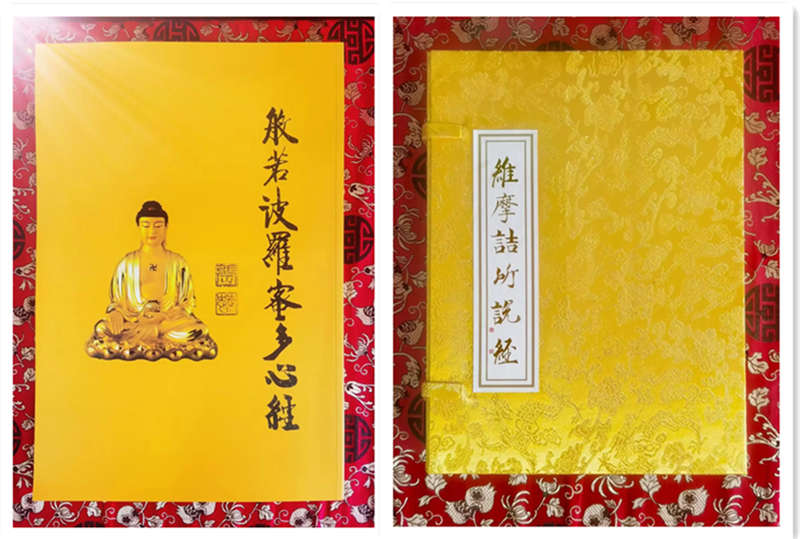 般若波羅蜜多心經
維摩詰所說經